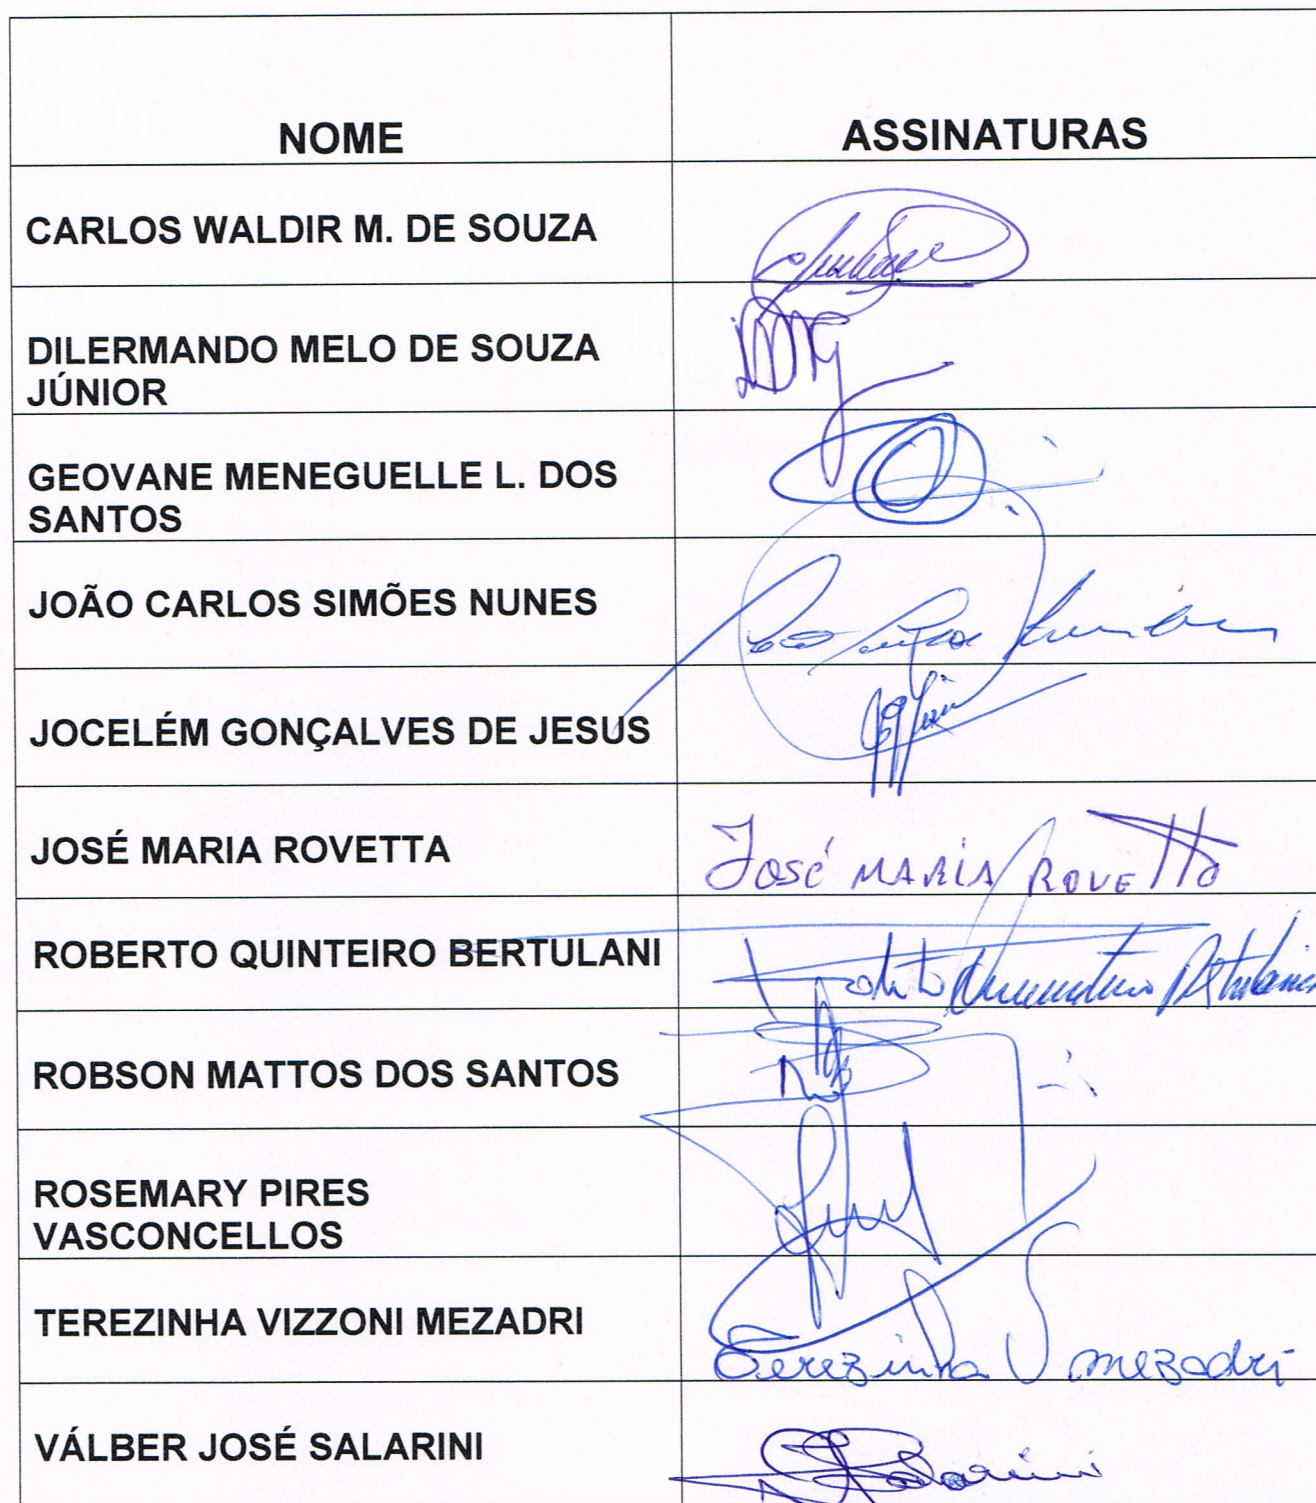 NOME ASSINATURAS
CARLOS WALDIR M. DE SOUZA
DILERMANDO MELO DE SOUZA
JÚNIOR
GEOVANE MENEGUELLE L. DOS
SANTOS
JOÃO CARLOS SIMÕES NUNES
JOCELÉM GONÇALVES DE JESUS
JOSÉ MARIA ROVETTA José MARIA ROVETTA
ROBERTO QUINTEIRO BERTULANI
ROBSON MATTOS DOS SANTOS
ROSEMARY PIRES
VASCONCELLOS
TEREZINHA VIZZONI MEZADRI Terezinha V mezadri
VÁLBER JOSÉ SALARINI Salarini